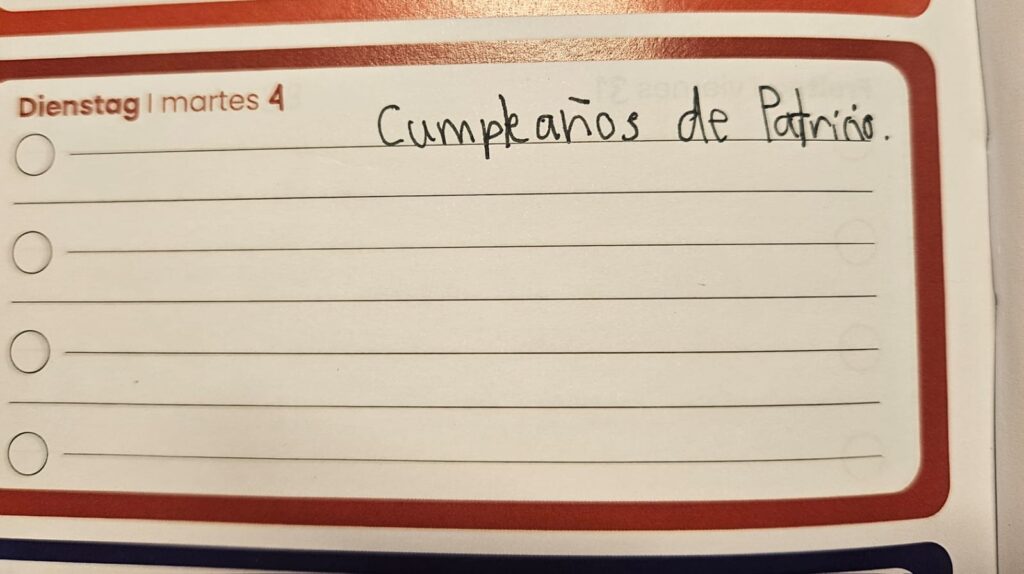 Dienstag | martes 4
Cumpleaños de Patricio.